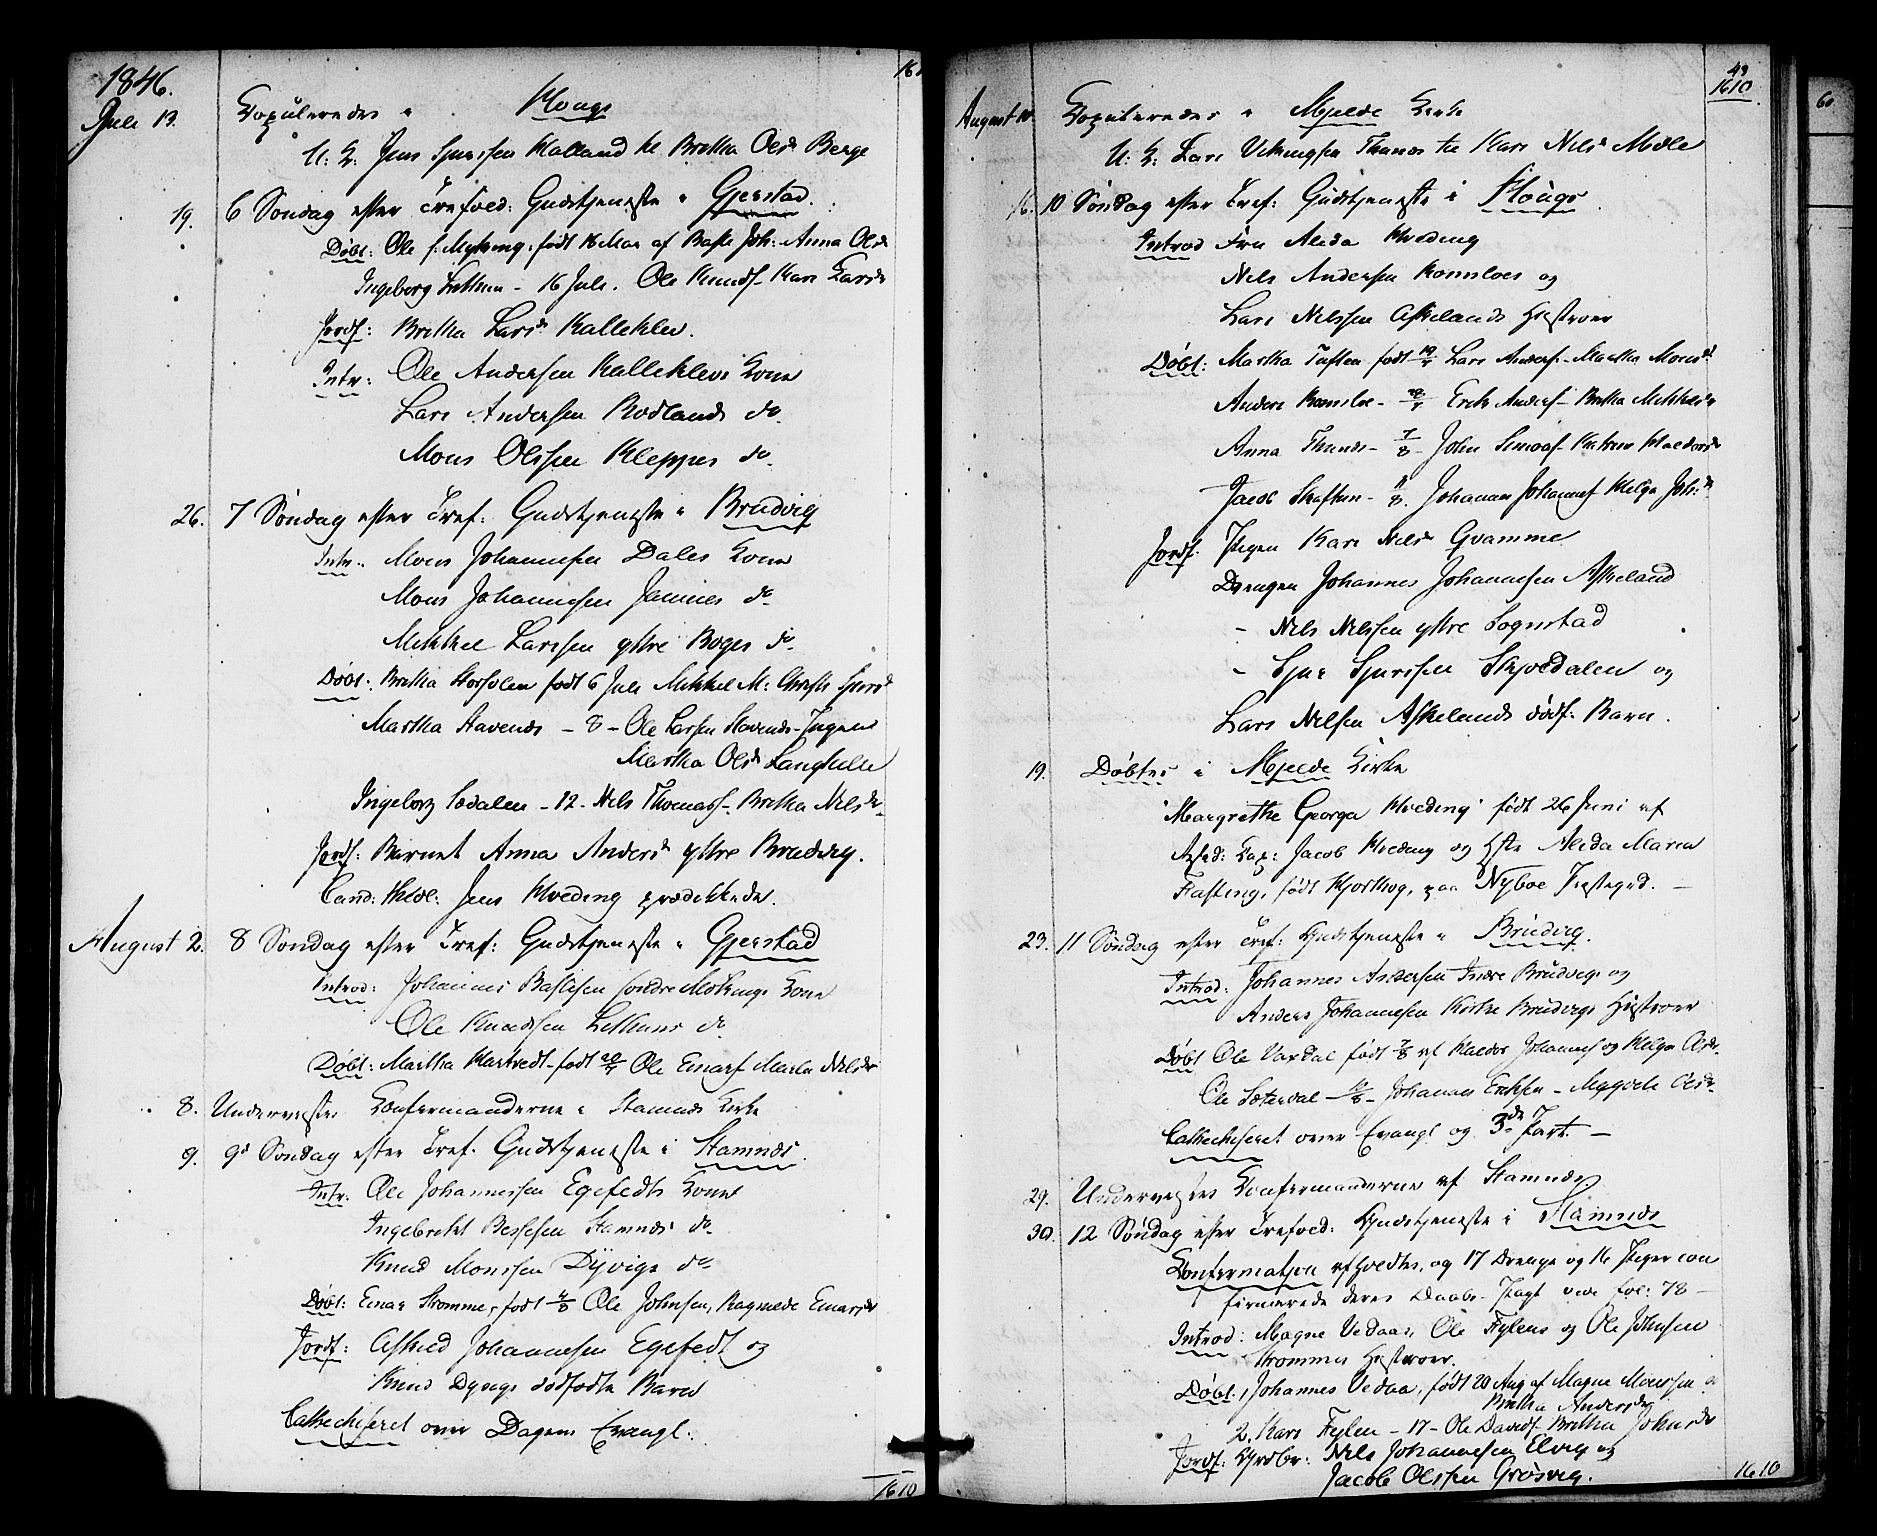 1846.
Juli 13. Copuleredes i Hougs
U: K: Jens Sjursen Halland til Britha Olsd Berge
19. 6 Søndag efter Trefold: Gudstjeneste i Gjerstad.
Døbt: Ole s: Mykeng, født 16 Mai af Baste Joh: Anna Olsd
Ingeborg - 16 Juli. Ole Knuds- Kari Larsd
Jordf: Britha Larsd Kalleklev.
Intr: Ole Andersen Kalleklevs Kone
Lars Andersen Rødlands do
Mons Olsen Kleppes do
26. 7 Søndag efter Tref: Gudstjeneste i Brudvig
Intr: Mons Johannesen Dales Kone
Mons Johannesen Jamnes do
Mikkel Larsen yttre Boges do
Døbt: Britha født 6 Juli Mikkel M: Sjursd
Martha Stavenes - 8 - Ole Larsen Stavenes - Pigen
Martha Olsd Langhelle
Ingeborg Sædalen - 12 - Nils Thomass- Britha Nilsd
Jordf: Barnet Anna Andersd yttre Brudvig.
Cand: theol: Jens Hveding prædikkede.
August 2. 8 Søndag efter Tref: Gudstjeneste i Gjerstad
Introd: Johannes Bastesen søndre Mykings Kone
Ole Knudsen do
Døbt: Martha Hartvedt - født Ole Einars Marta Nilsd
8. Undervistes Confirmanderne i Stamnes Kirke
9. 9d Søndag efter Tref. Gudstjeneste i Stamnes.
Intr: Ole Johannessen Egefedts Kone
Ingebrikt Stamnes do
Knud Monssen Dyvigs do
Døbt: Einar Strømme, født 4/8 Ole Johnsen, Ragnilde Einarsd
Jordf: Johannesen Egefedt og
Knud Dyvigs dødfødte Barn
Cathechiseret over Dagens Evangl:
1610
49
1610
August 10. Copuleredes i Mjelde Kirke
U: K: Lars Vikingsen Thunes til Kari Nilsd Mæle
16. 10 Søndag efter Tref: Gudstjeneste i Hougs
Introd Fru Alida Hveding
Nils Andersen Romsloes og
Lars Nilssen Askelands Hustruer
Døbt: Martha Tuften født Lars Anders- Martha Monsd
Anders Romsloe - Erik Anders- Britha Mikkelsd
Anna Thunes - 7/8 - John
Jacob Skaften - Johannes Johannes Helga Joh:d
Jordf: Pigen Kari Nilsd Gvamme
Drengen Johannes Johannesen Askeland
- Nils Nilssen yttre Sognstad
- Sjur Sjursen Skjoldalen og
Lars Nilsen Askelands dødf: Barn.
19. Døbtes i Mjelde Kirke
Margrethe Georga Hveding født 26 Juni af
Cap: Jacob Hveding og Hstr Alida Maria
Fasting, født Hjorthøg, paa Nyboe
23. 11 Søndag efter Tref: Gudstjeneste i Brudvig.
Introd: Johannes Andersen Indre Brudvigs og
Anders Johannesen Kirke Brudvigs Hustruer
Døbt Ole Vaxdal født 7/8 af Haldor Johannes og Helga Olsd.
Ole Sæterdal - Johannes Eriksen - Magdeli Olsd.
Cathechiseret over Evangl og 3de Part. -
29. Undervistes Confirmanderne af Stamnes
30. 12 Søndag efter Trefold: Gudstjeneste i Stamnes
Confirmatjon afholdtes, og 17 Drenge og 16 Piger con
firmerede deres Daabs-Pagt vide fol: 78 -
Introd: Magne Vedaas, Ole Fylens og Ole Johnsen
Strømmes Hustruer.
Døbt 1, Johannes Vedaa, født 20 Aug af Magne Monssen
Britha Andersd
2, Kari Fylen - 17 - Ole Davids- Britha Johnsd
Jordf: Gdbr: Nils Johannesen Elvig og
Jacob Olssen Grøsvig.
1610